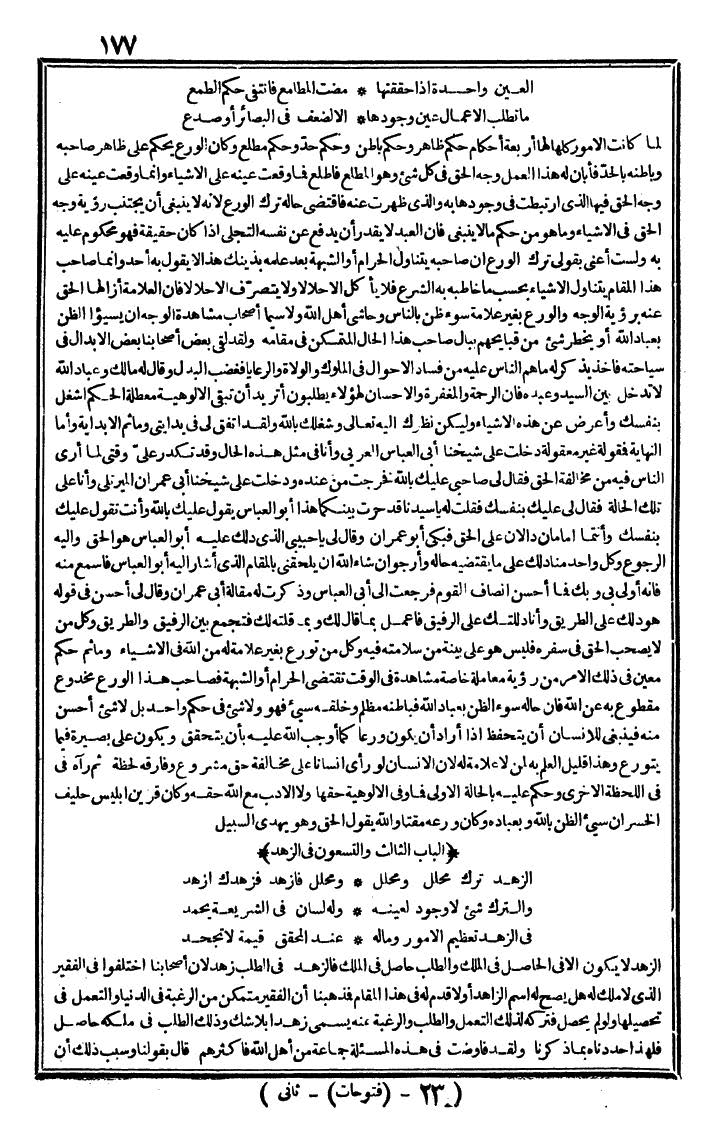 ١٧٧
العين واحدة اذا حققتها * مضت المطامع فانتفى حكم الطمع
ما تطلب الاعمال عين وجودها * الا لضعف فى البصائر أو صدع
لما كانت الامور كلها لها أربعة أحكام حكم ظاهر وحكم باطن وحكم حد وحكم مطلع وكان الورع يحكم على ظاهر صاحبه
وباطنه بالحد فأبان له هذا العمل وجه الحق فى كل شئ وهو المطلع فاطلع فما وقعت عينه على الاشياء وانما وقعت عينه على
وجه الحق فيها الذى ارتبطت فى وجودها به والذى ظهرت عنه فاقتضى حاله ترك الورع لانه لا ينبغى أن يجتنب رؤية وجه
الحق فى الاشياء وما هو من حكم ما لا ينبغى فان العبد لا يقدر أن يدفع عن نفسه التجلى اذا كان حقيقة فهو محكوم عليه
به ولست أعنى بقولى ترك الورع ان صاحبه يتناول الحرام أو الشبهة بعد علمه بذينك هذا لا يقول به أحد وانما صاحب
هذا المقام يتناول الاشياء بحسب ما خاطبه به الشرع فلا يأكل الا حلالا ولا يتصرف الا حلالا فان العلامة أزالها الحق
عنه برؤية الوجه والورع بغير علامة سوء ظن بالناس وحاشى أهل الله ولا سيما أصحاب مشاهدة الوجه ان يسيؤا الظن
بعباد الله أو يخطر شئ من قبايحهم ببال صاحب هذا الحال المتمكن فى مقامه ولقد لقى بعض أصحابنا بعض الابدال فى
سياحته فاخذ يذكر له ما هم الناس عليه من فساد الاحوال فى الملوك والولاة والرعايا فغضب البدل وقال له مالك وعباد الله
لا تدخل بين السيد وعبده فان الرحمة والمغفرة والاحسان لهؤلاء يطلبون أتريد أن تبقى الالوهية معطلة الحكم اشغل
بنفسك وأعرض عن هذه الاشياء وليكن نظرك اليه تعالى وشغلك بالله ولقد اتفق لى فى بدايتى وما ثم الا بداية وأما
النهاية فقولة غير معقولة دخلت على شيخنا أبى العباس العربى وأنا فى مثل هذه الحال وقد تكدر علىّ وقتى لما أرى
الناس فيه من مخالفة الحق فقال لى صاحبى عليك بالله فخرجت من عنده ودخلت على شيخنا أبى عمران الميرتلى وأنا على
تلك الحالة فقال لى عليك بنفسك فقلت له يا سيدنا قد حرت بينكما هذا أبو العباس يقول عليك بالله وأنت تقول عليك
بنفسك وأنتما امامان دالان على الحق فبكى أبو عمران وقال لى يا حبيبى الذى دلك عليه أبو العباس هو الحق واليه
الرجوع وكل واحد منا دلك على ما يقتضيه حاله وأرجو ان شاء الله ان يلحقنى بالمقام الذى أشار اليه أبو العباس فاسمع منه
فانه أولى بى وبك فما أحسن انصاف القوم فرجعت الى أبى العباس وذكرت له مقالة أبى عمران وقال لى أحسن فى قوله
هو دلك على الطريق وأنا دللتك على الرفيق فاعمل بما قال لك وبما قلته لك فتجمع بين الرفيق والطريق وكل من
لا يصحب الحق فى سفره فليس هو على بينة من سلامته فيه وكل من تورع بغير علامة له من الله فى الاشياء وما ثم حكم
معين فى ذلك الامر من رؤية معاملة خاصة مشاهدة فى الوقت تقتضى الحرام أو الشبهة فصاحب هذا الورع مخدوع
مقطوع به عن الله فان حاله سوء الظن بعباد الله فباطنه مظلم وخلقه سيئ فهو ولا شئ فى حكم واحد بل لا شئ أحسن
منه فينبغى للانسان أن يتحفظ اذا أراد أن يكون ورعا كما أوجب الله عليه بأن يتحقق ويكون على بصيرة فيما
يتورع وهذا قليل العلم به لمن لا علامة له لان الانسان لو رأى انسانا على مخالفة حق مشروع وفارقه لحظة ثم رآه فى
فى اللحظة الاخرى وحكم عليه بالحالة الاولى فما وفى الالوهية حقها ولا الادب مع الله حقه وكان قرين ابليس حليف
الخسران سيئ الظن بالله وبعباده وكان ورعه مقتا والله يقول الحق وهو يهدى السبيل
﴿الباب الثالث والتسعون فى الزهد﴾
الزهد ترك محلل ومحلل * ومحلل فازهد فزهدك ازهد
والترك شئ لا وجود لعينه * وله لسان فى الشريعة يحمد
فى الزهد تعظيم الامور وماله * عند المحقق قيمة لا تجحد
الزهد لا يكون الا فى الحاصل فى الملك والطلب حاصل فى الملك فالزهد فى الطلب زهد لان أصحابنا اختلفوا فى الفقير
الذى لا ملك له هل يصح له اسم الزاهد أو لا قدم له فى هذا المقام فذهبنا أن الفقير متمكن من الرغبة فى الدنيا والتعمل فى
تحصيلها ولو لم يحصل فتركه لذلك التعمل والطلب والرغبة عنه يسمى زهدا بلا شك وذلك الطلب فى ملكه حاصل
فلهذا حددناه بما ذكرنا ولقد فاوضت فى هذه المسئلة جماعة من أهل الله فاكثرهم قال بقولنا وسبب ذلك أن
( ٢٣ - (فتوحات) - ثانى )